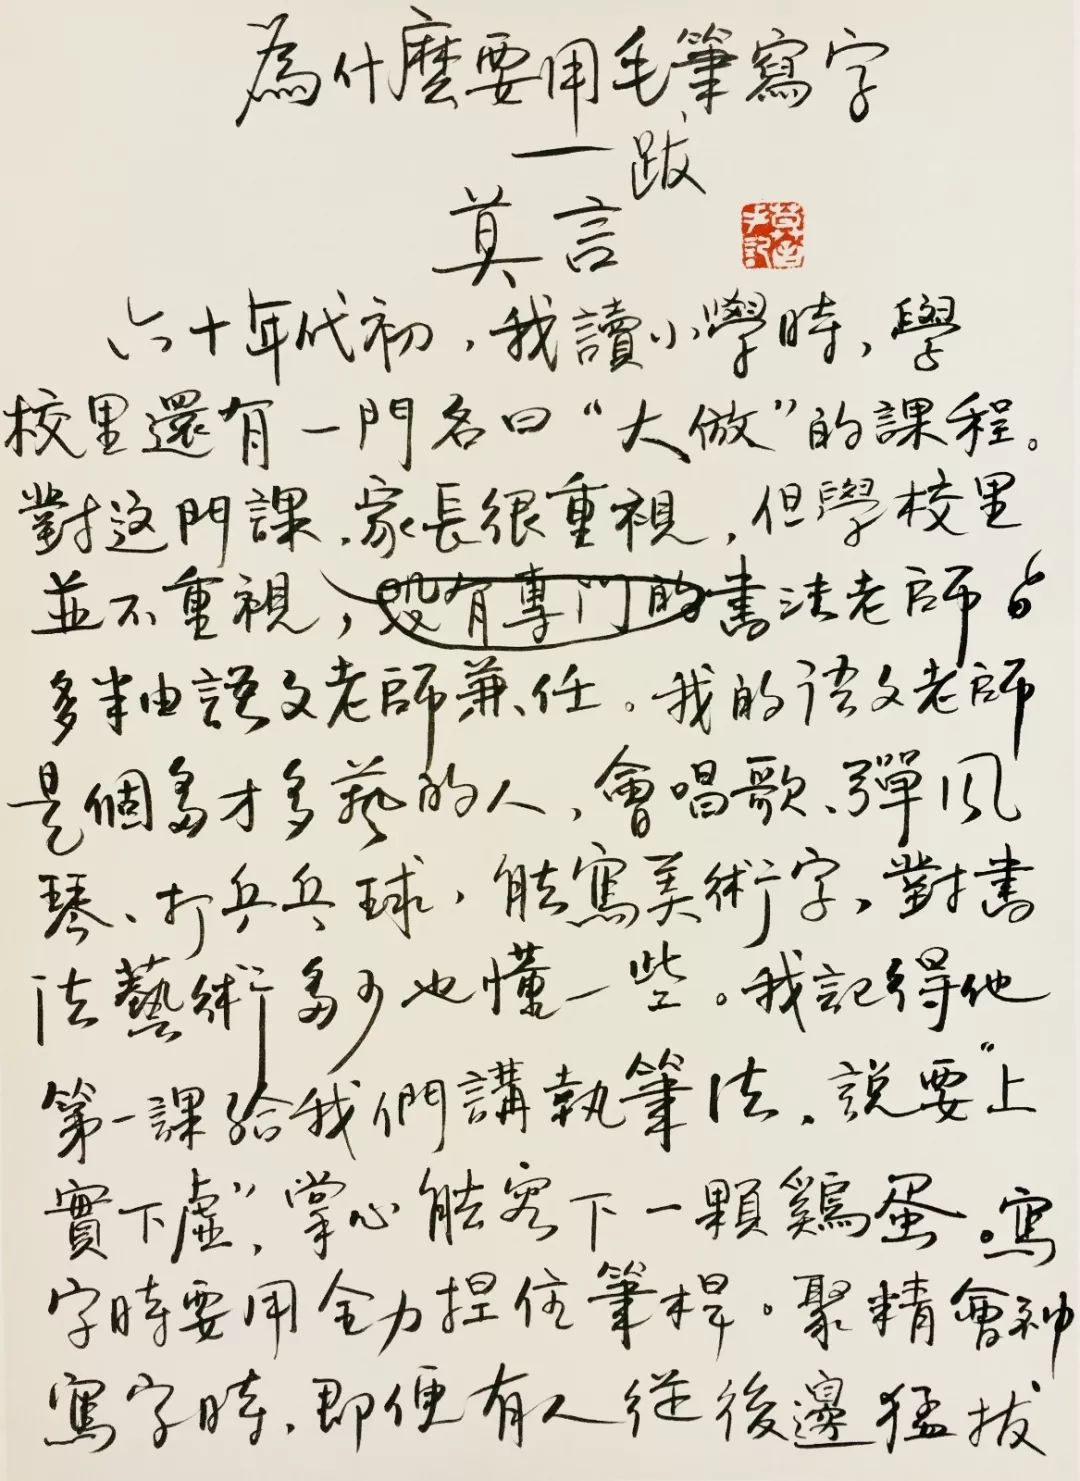 為什麼要用毛筆寫字
——跋
莫言
六十年代初，我讀小學時，學
校里還有一門名曰“大倣”的課程。
對这門課，家長很重視，但學校里
並不重視，沒有專門的書法老師，
多半由語文老師兼任。我的语文老師
是個多才多藝的人，會唱歌、彈风
琴、打乒乓球，能寫美術字，對書
法藝術多少也懂一些。我記得他
第一課給我們講執筆法，説要“上
實下虛”，掌心能容下一顆鷄蛋。寫
字時要用全力捏住筆桿。聚精會神
寫字時，即便有人從後邊猛拔